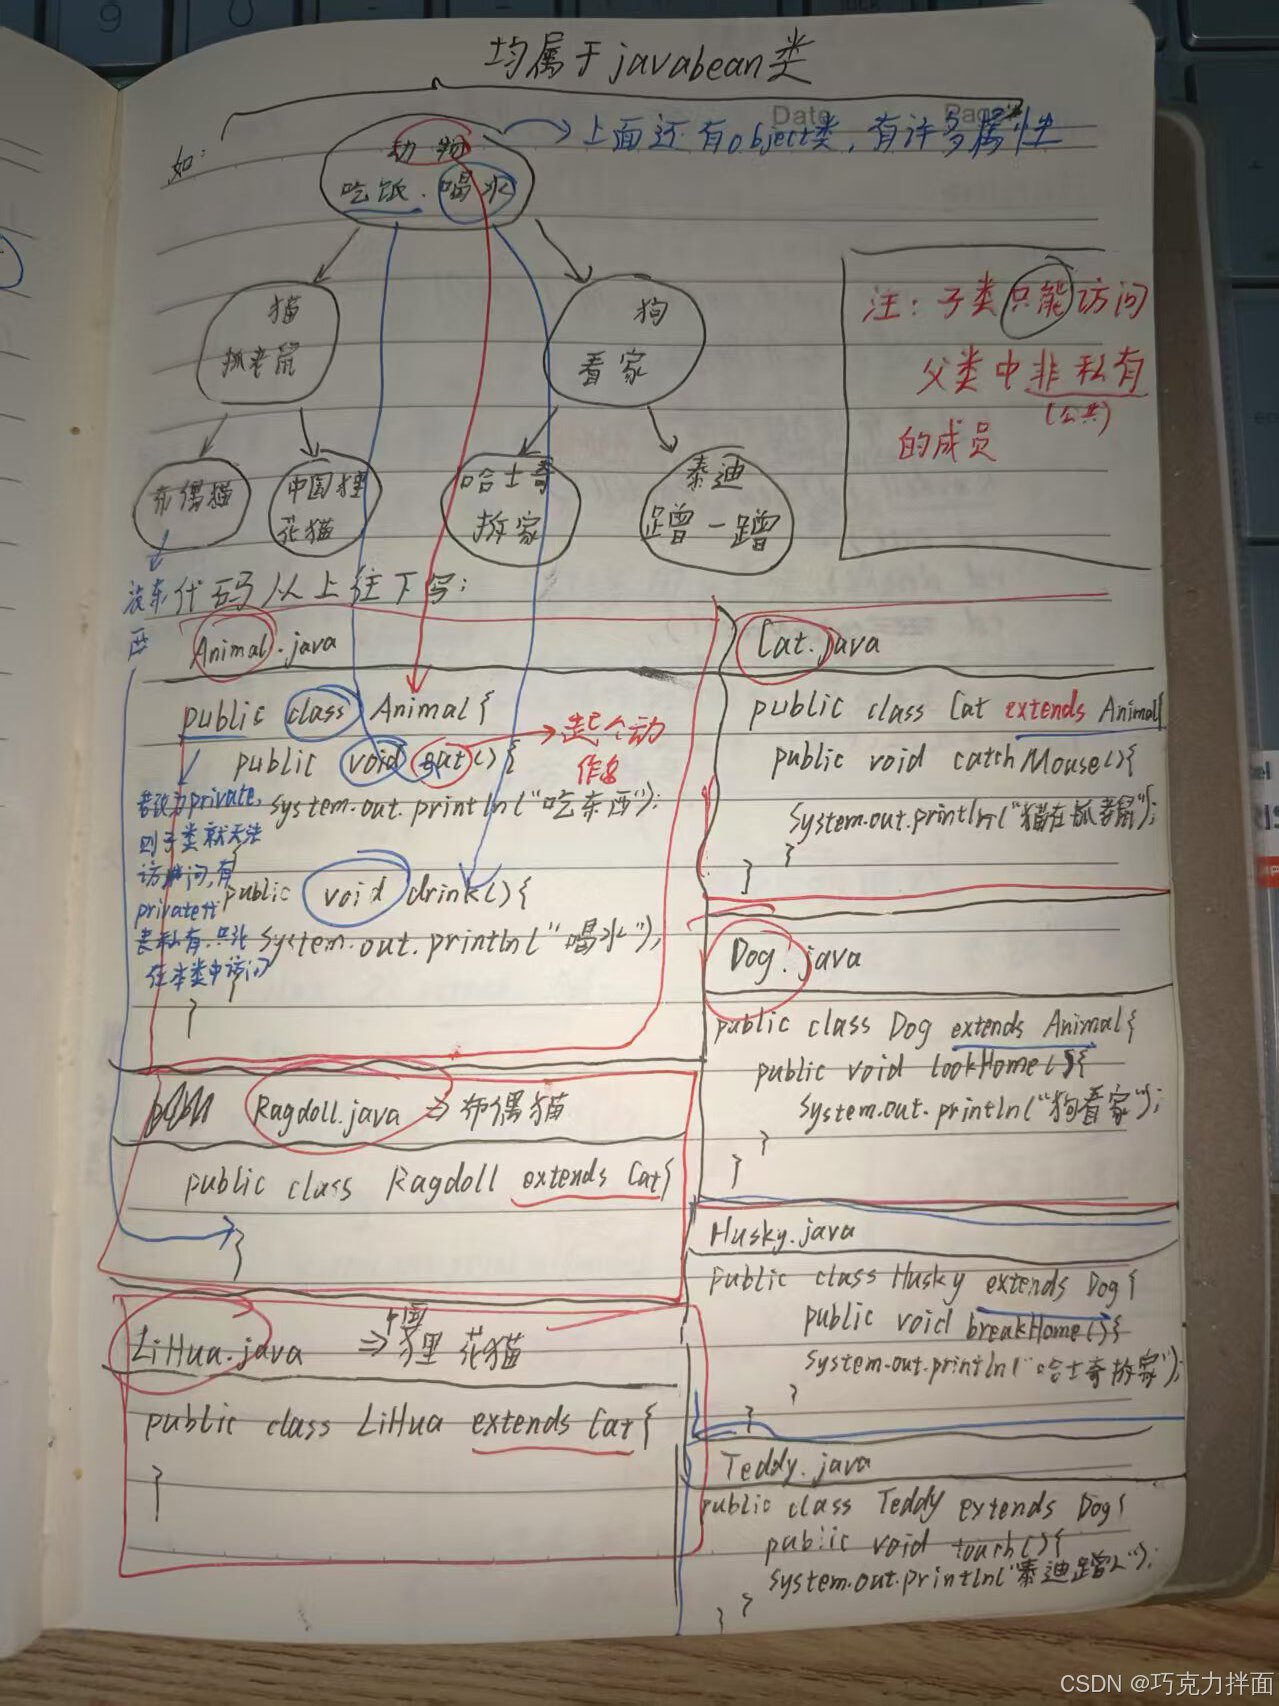 均属于javabean类
Date Page
如:
动物
吃饭.喝水
上面还有object类,有许多属性
猫
抓老鼠
狗
看家
布偶猫
中国狸
花猫
哈士奇
拆家
泰迪
蹭一蹭
注:子类只能访问
父类中非私有
(公共)
的成员
代码从上往下写:
Animal.java
public class Animal{
public void eat(){
起个动
作名
System.out.println("吃东西");
}
public void drink(){
System.out.println("喝水");
}
}
若改为private,
则子类就无法
访问,有
private代
表私有,只能
在本类中访问
Ragdoll.java ⇒ 布偶猫
public class Ragdoll extends Cat{
}
LiHua.java ⇒ 中国
狸花猫
public class LiHua extends Cat{
}
Cat.java
public class Cat extends Animal{
public void catchMouse(){
System.out.println("猫在抓老鼠");
}
}
Dog.java
public class Dog extends Animal{
public void lookHome(){
System.out.println("狗看家");
}
}
Husky.java
public class Husky extends Dog{
public void breakHome(){
System.out.println("哈士奇拆家");
}
}
Teddy.java
public class Teddy extends Dog{
public void touch(){
System.out.println("泰迪蹭人");
} }
CSDN @巧克力拌面